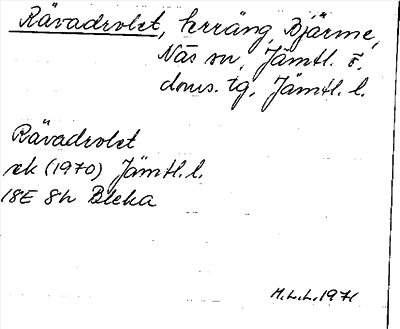 Rävadrolet, terräng, Bjärme,
Näs sn, Jämtl. ö.
doms. tg, Jämtl. l.
Rävadrolet
ek (1970) Jämtl. l.
18E 8h Bleka
M.L.L. 1971